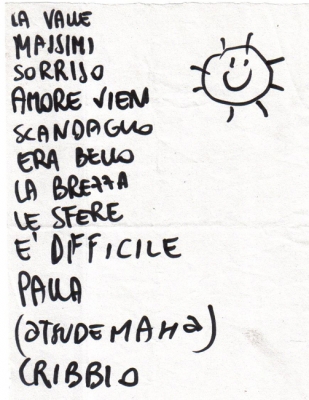 LA VALLE
MASSIMI
SORRISO
AMORE VIENI
SCANDAGLIO
ERA BELLO
LA BREZZA
LE SFERE
E' DIFFICILE
PALLA
(ATSUDEMAHA)
CRIBBIO